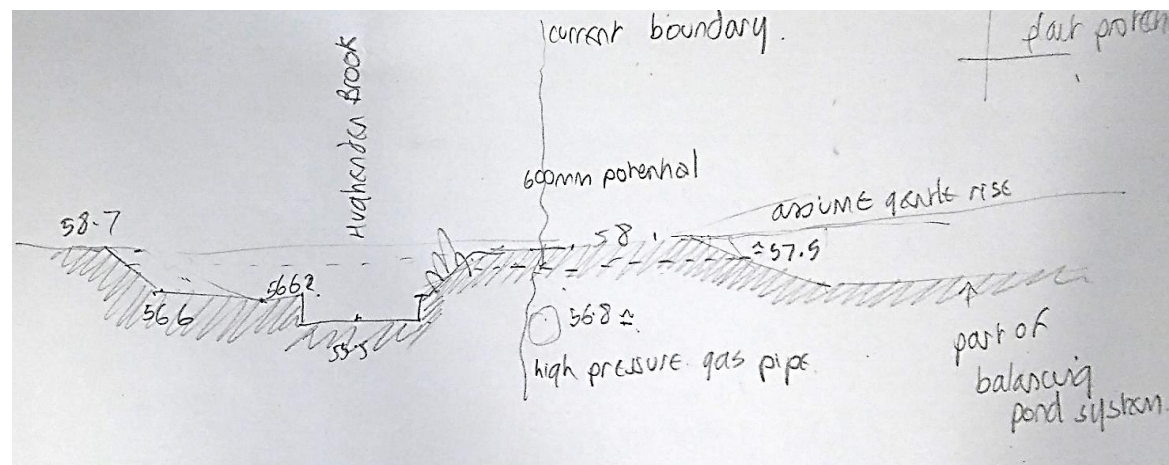 current boundary.
Hughenden Brook
600mm potential
assume gentle rise
58.7
58
≈57.5
5662
56.6
55.5
56.8 ≈
high pressure gas pipe.
part of
balancing
pond system.